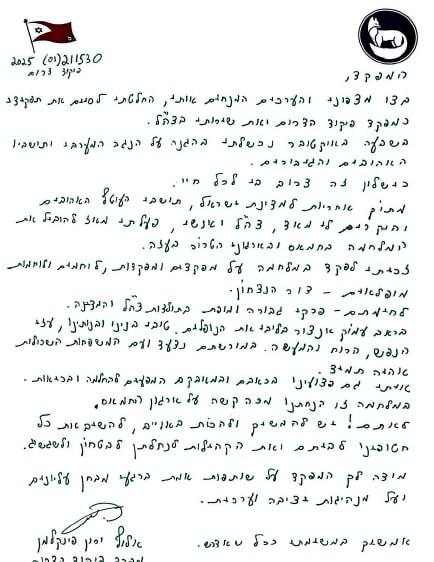 211530 (01) 2025
פיקוד דרום
המפקד,
בצו מצפוני והערכים המנחים אותי, החלטתי לסיים את תפקידי
כמפקד פיקוד הדרום ואת שירותי בצה"ל.
בשבעה באוקטובר נכשלתי בהגנה על הנגב המערבי ותושביו
האהובים והגיבורים.
כישלון זה צרוב בי לכל חיי.
מתוך אחריות למדינת ישראל, תושבי העוטף האהובים
והיקרים לי מאוד, צה"ל ואנשיו, פעלתי מאז להוביל את
המלחמה בחמאס ובארגוני הטרור בעזה.
זכיתי לפקד במלחמה על מפקדים ומפקדות, לוחמים ולוחמות
מופלאים - דור הניצחון.
לחימתם - פרקי גבורה ומופת בתולדות צה"ל והמדינה.
בכאב עמוק אנצור בליבי את הנופלים. טובי בנינו ובנותינו, עזי
הנפש, הרוח והמעשה. במורשתם נצעד ועם המשפחות השכולות
אהיה תמיד.
איתי גם פצועינו בכאבם ובמאבקם להחלמה ובריאות.
במלחמה זו הנחתנו מכה קשה על ארגון החמאס.
לא תם! יש להמשיך ולהכות באויב, להשיב את כל
חטופינו לביתם ואת הקהילות לנחלתן לבטחון ולשגשג.
מודה לך המפקד על שותפות אמת ברגעי מבחן עליונים
ועל מנהיגות יציבה וערכית.
אמשיך במשימתי ככל שאדרש.
אלוף ירון פינקלמן
מפקד פיקוד הדרום